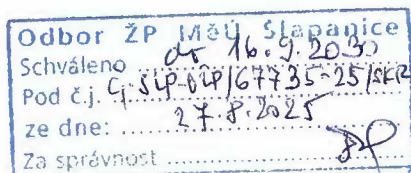 Odbor ŽP MěÚ Šlapanice
Schváleno do 16.9.2030
Pod č.j. Čj. SLP-OŽP/67735-25/SKR
ze dne: 27.8.2025
Za správnost